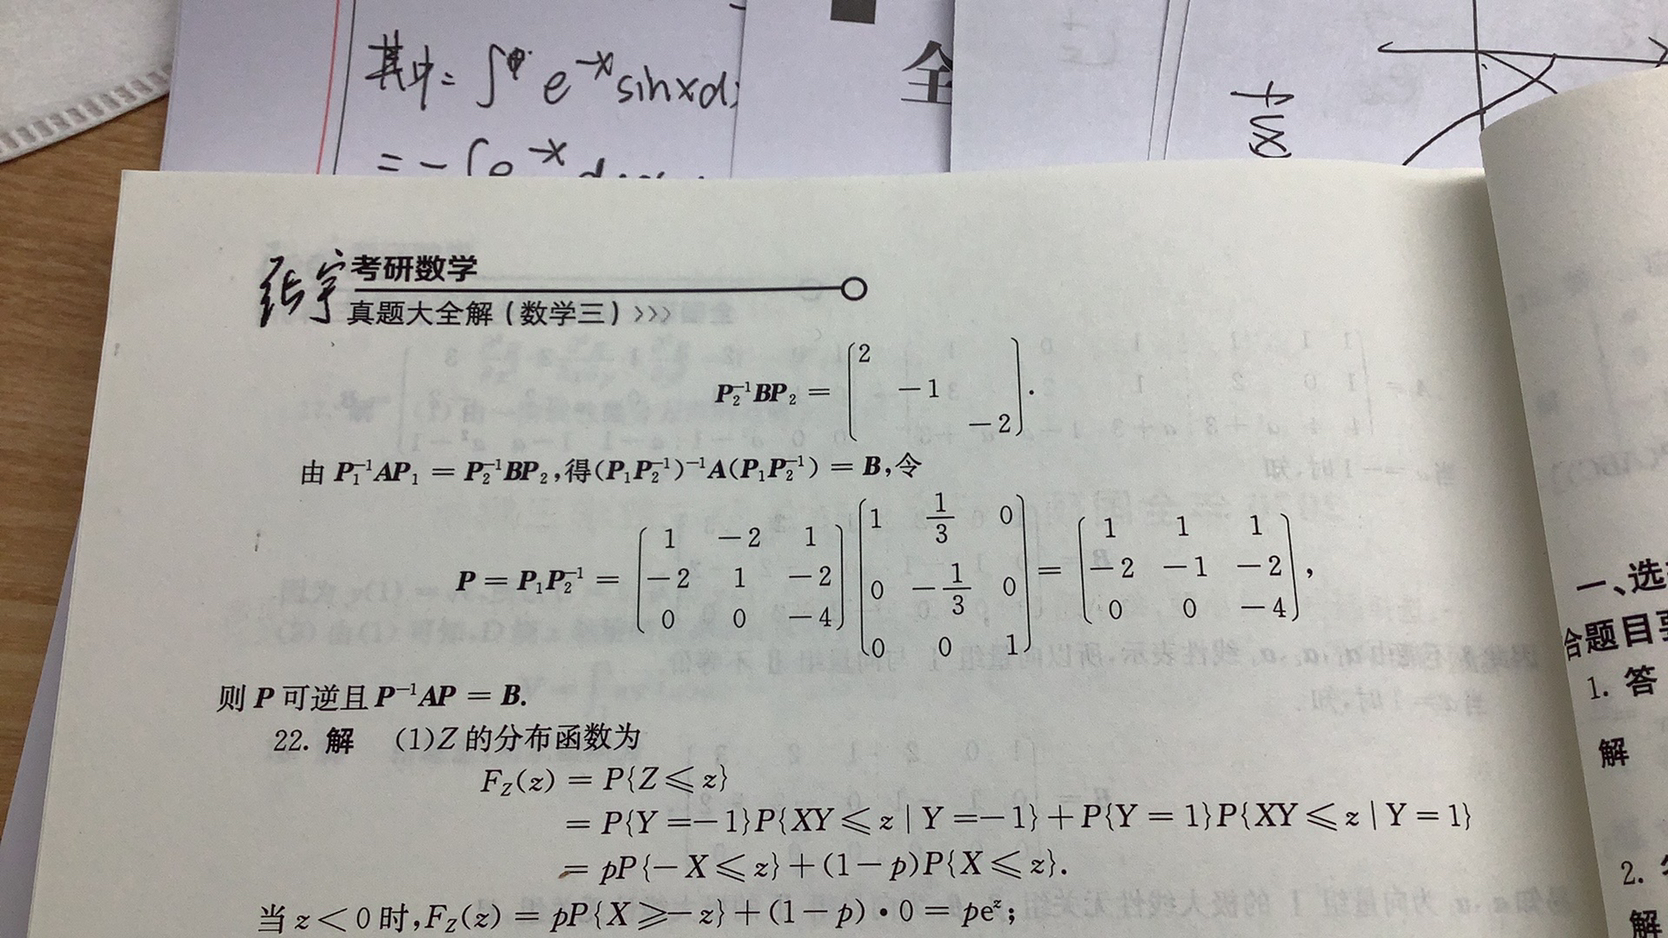 其中= ∫ e^{-x} sinxd
= - ∫e^{-x} d
全
张宇 考研数学
真题大全解(数学三)>>>
P₂⁻¹BP₂ = [2 -1 -2].
由 P₁⁻¹AP₁ = P₂⁻¹BP₂,得(P₁P₂⁻¹)⁻¹A(P₁P₂⁻¹) = B,令
P = P₁P₂⁻¹ = [1 -2 1; -2 1 -2; 0 0 -4] [1 1/3 0; 0 -1/3 0; 0 0 1] = [1 1 1; -2 -1 -2; 0 0 -4],
则 P 可逆且 P⁻¹AP = B.
22. 解 (1)Z 的分布函数为
F_Z(z) = P{Z ⩽ z}
= P{Y =-1}P{XY ⩽ z | Y =-1} + P{Y = 1}P{XY ⩽ z | Y = 1}
= pP{-X ⩽ z} + (1-p)P{X ⩽ z}.
当 z < 0 时,F_Z(z) = pP{X ⩾-z} + (1-p)·0 = pe^z;
一、选
合题目要
1. 答
解
2.
解